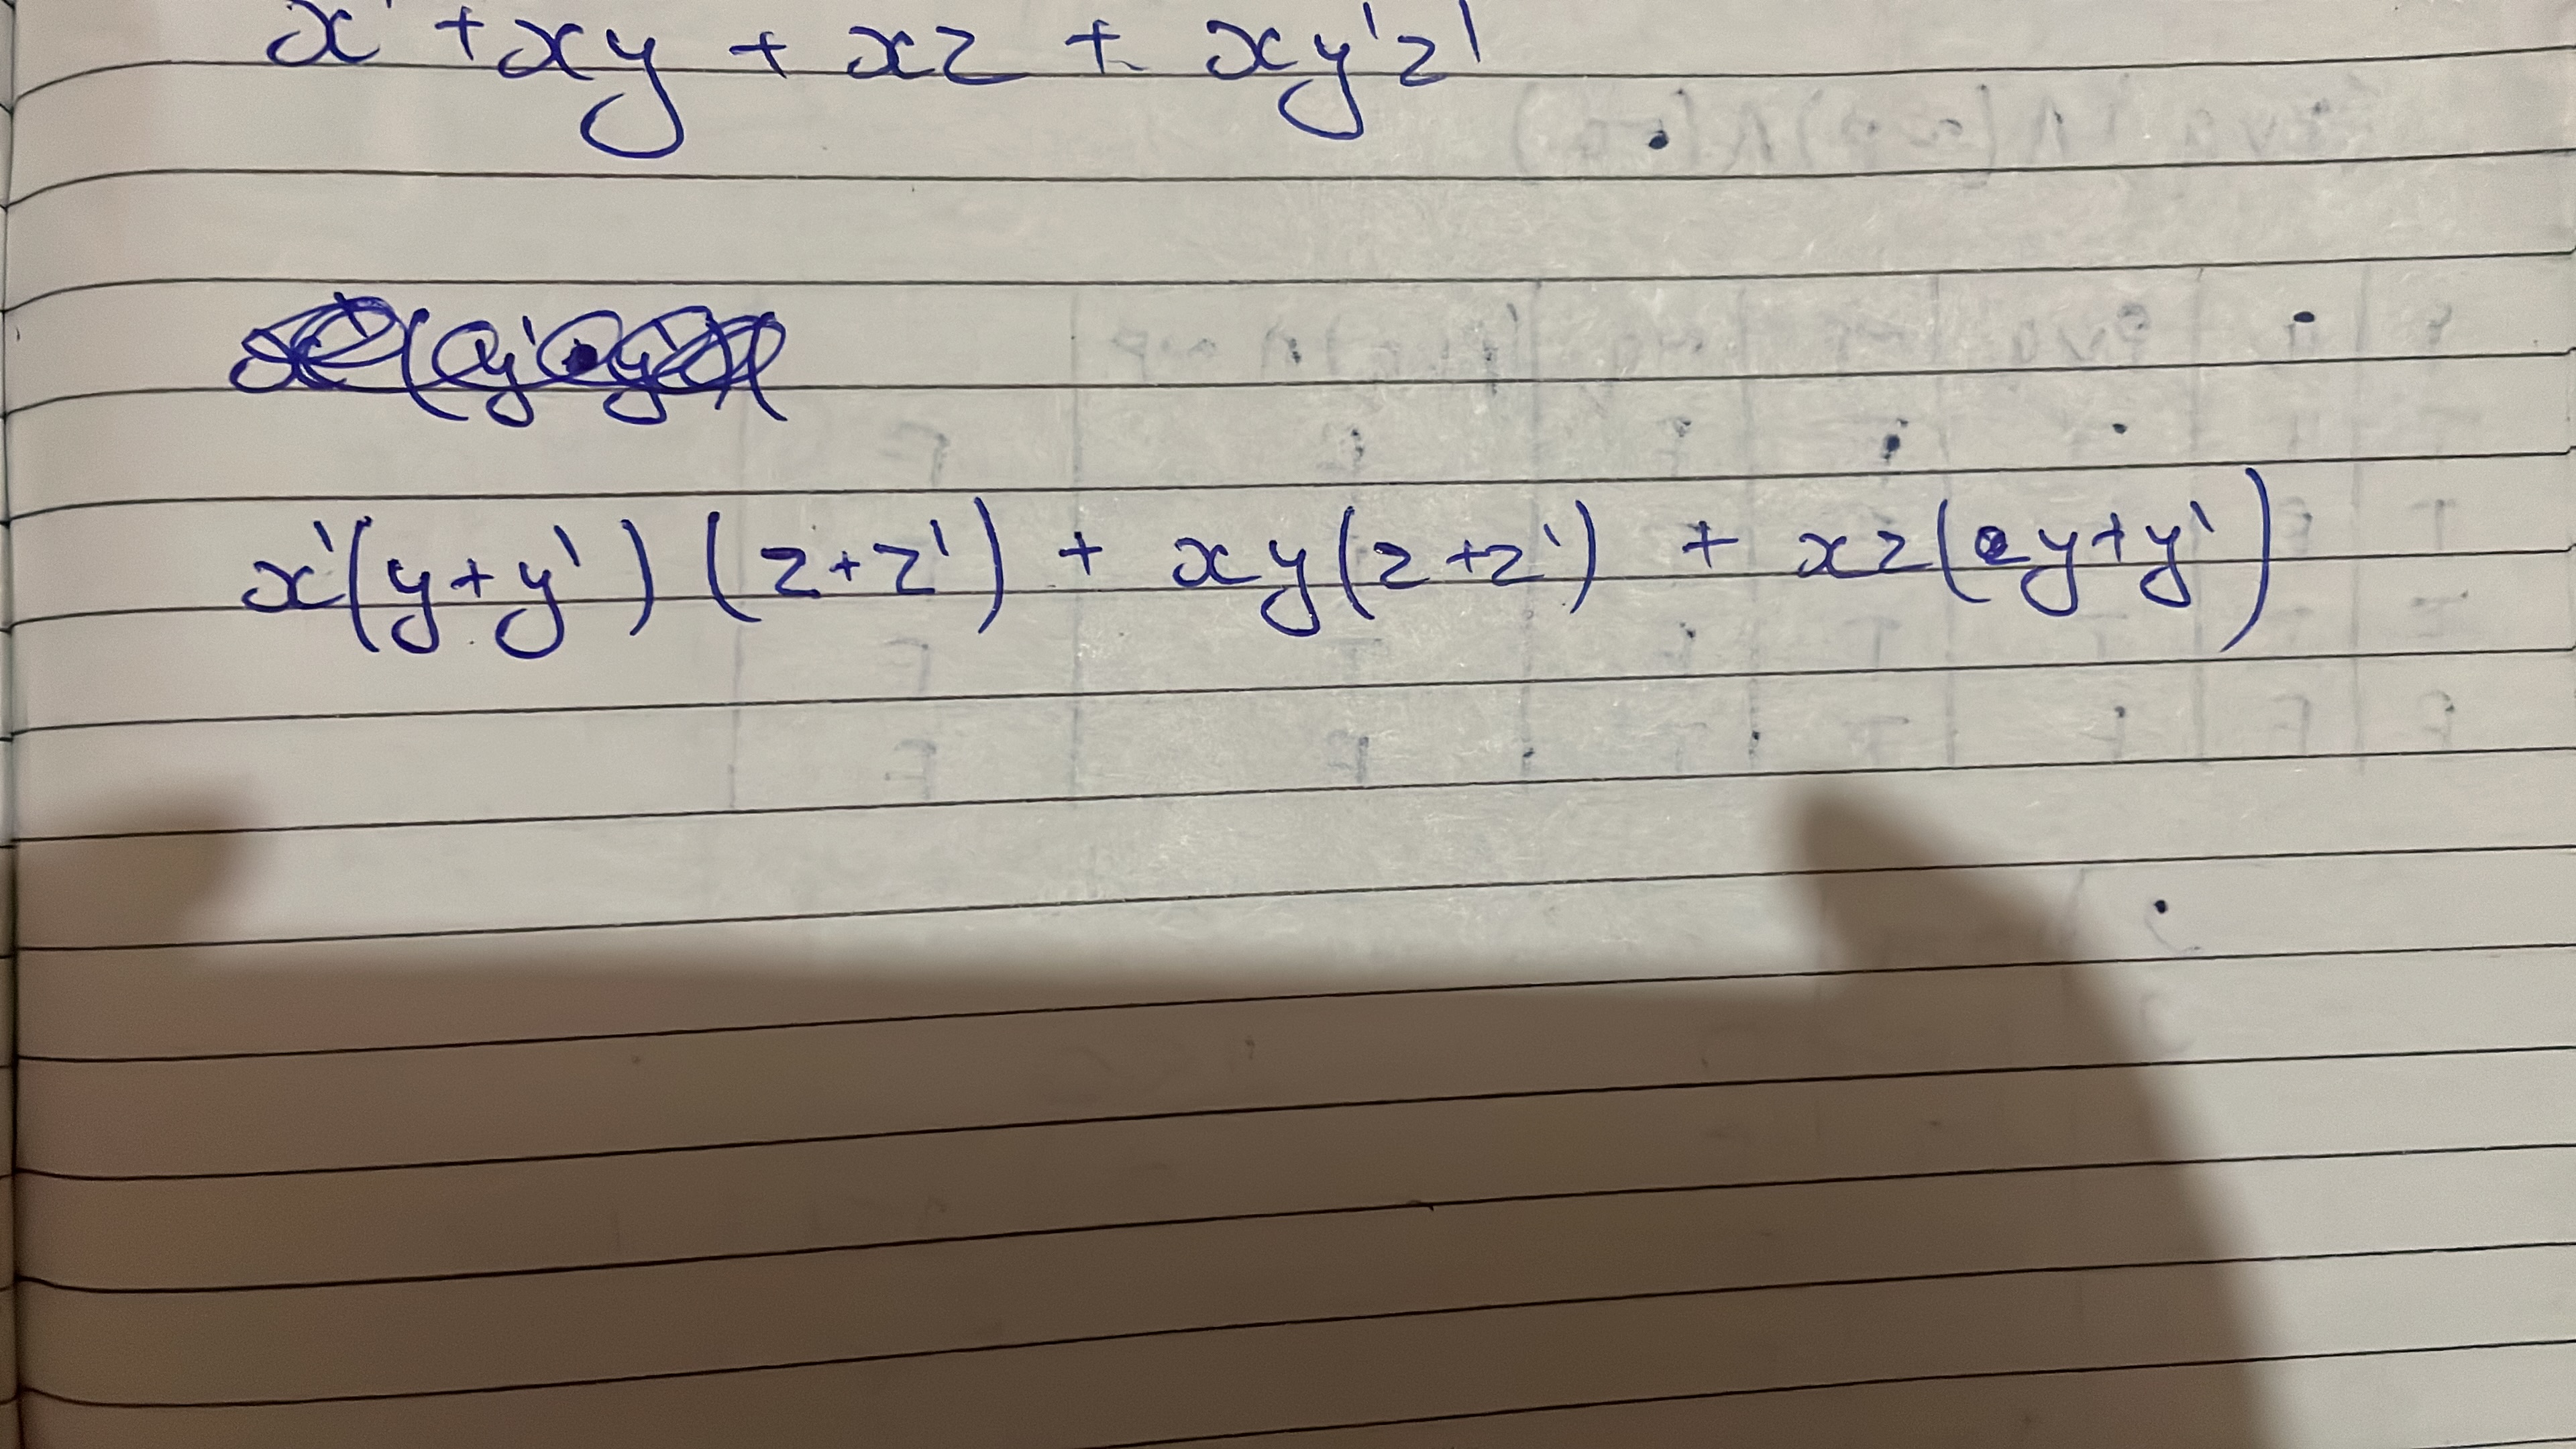 x' + xy + xz + xy'z'
x'(y+y')(z+z') + xy(z+z') + xz(y+y')